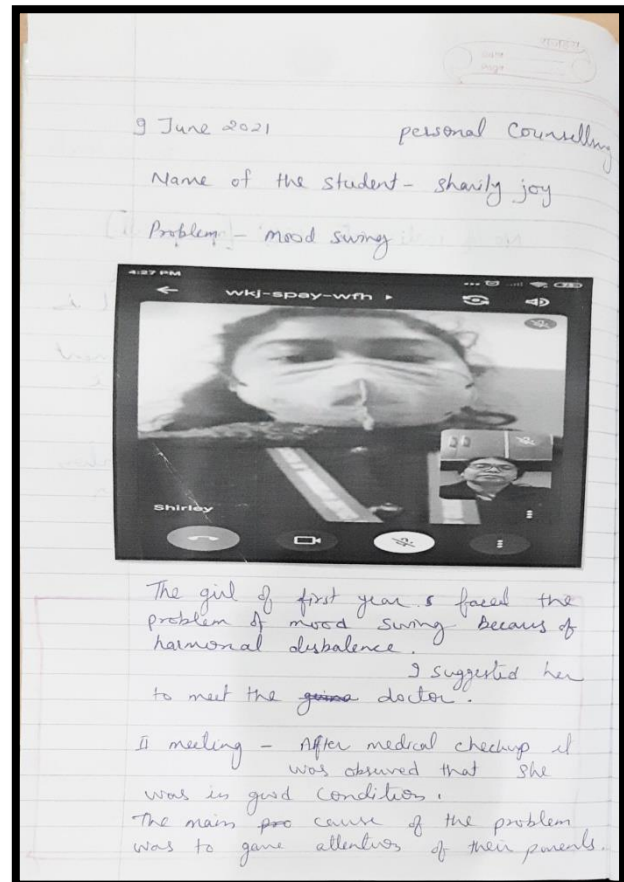 9 June 2021 personal Counselling
Name of the student - sharily joy
Problem - mood swing
4:27 PM
wkj-spay-wfh
Shirley
The girl of first year s faced the
problem of mood swing becaus of
harmonal disbalence.
I suggested her
to meet the doctor.
II meeting - After medical checkup it
was observed that she
was in good condition.
The main pro cause of the problem
was to gane attention of their parents.